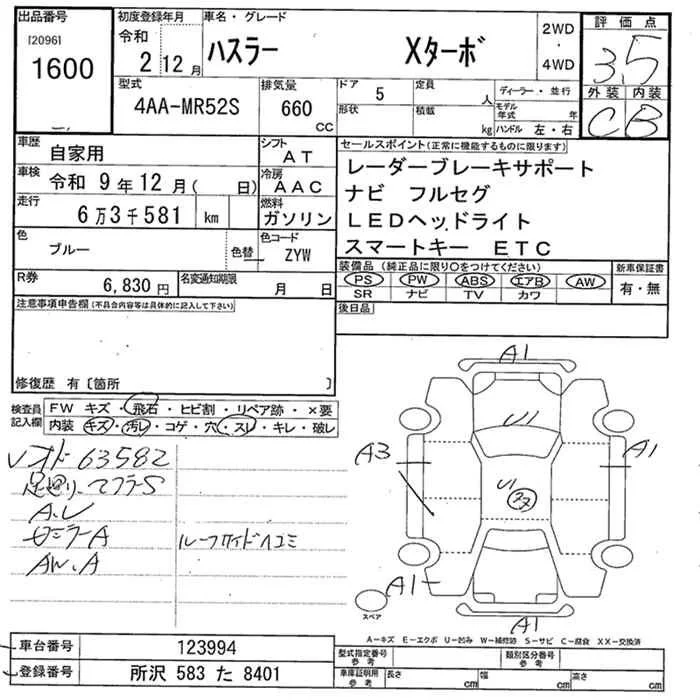 出品番号
[2096]
1600
初度登録年月
令和
2 12月
車名・グレード
ハスラー Xターボ
2WD
・
4WD
評価点
3.5
外装 内装
C B
型式
4AA-MR52S
排気量
660
CC
ドア 5
形状
定員
人
積載
kg
ディーラー・並行
モデル年式 年
ハンドル 左・右
車歴
自家用
シフト
AT
車検
令和 9年12月( 日)
冷房
AAC
走行
6万3千581 km
燃料
ガソリン
色
ブルー
色替
色コード
ZYW
R券
6,830円
名変通知期限
月 日
セールスポイント(正常に機能するものに限ります)
レーダーブレーキサポート
ナビ フルセグ
LEDヘッドライト
スマートキー ETC
装備品(純正品に限り○をつけてください)
PS PW ABS エアB AW
SR ナビ TV カワ
新車保証書
有・無
後日品
注意事項申告欄(不具合内容等は具体的に記入して下さい)
修復歴 有〔箇所 〕
検査員
記入欄
FW キズ・飛石・ヒビ割・リペア跡・×要
内装 キズ・汚レ・コゲ・穴・スレ・キレ・破レ
63582
マフラーS
A.U
ミラーA
AW.A
ルーフサイドヘコミ
A1
A3
A1
U1
U1
A1
A1
スペア
A-キズ E-エクボ U-凹み W-補修跡 S-サビ C-腐食 XX-交換済
車台番号
123994
登録番号
所沢 583 た 8401
型式指定番号
参考
類別区分番号
参考
車庫証明用
参考
長さ cm
幅 cm
高さ cm